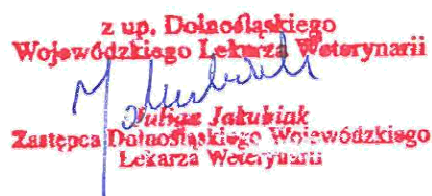 z up. Dolnośląskiego
Wojewódzkiego Lekarza Weterynarii
Julian Jakubiak
Zastępca Dolnośląskiego Wojewódzkiego
Lekarza Weterynarii